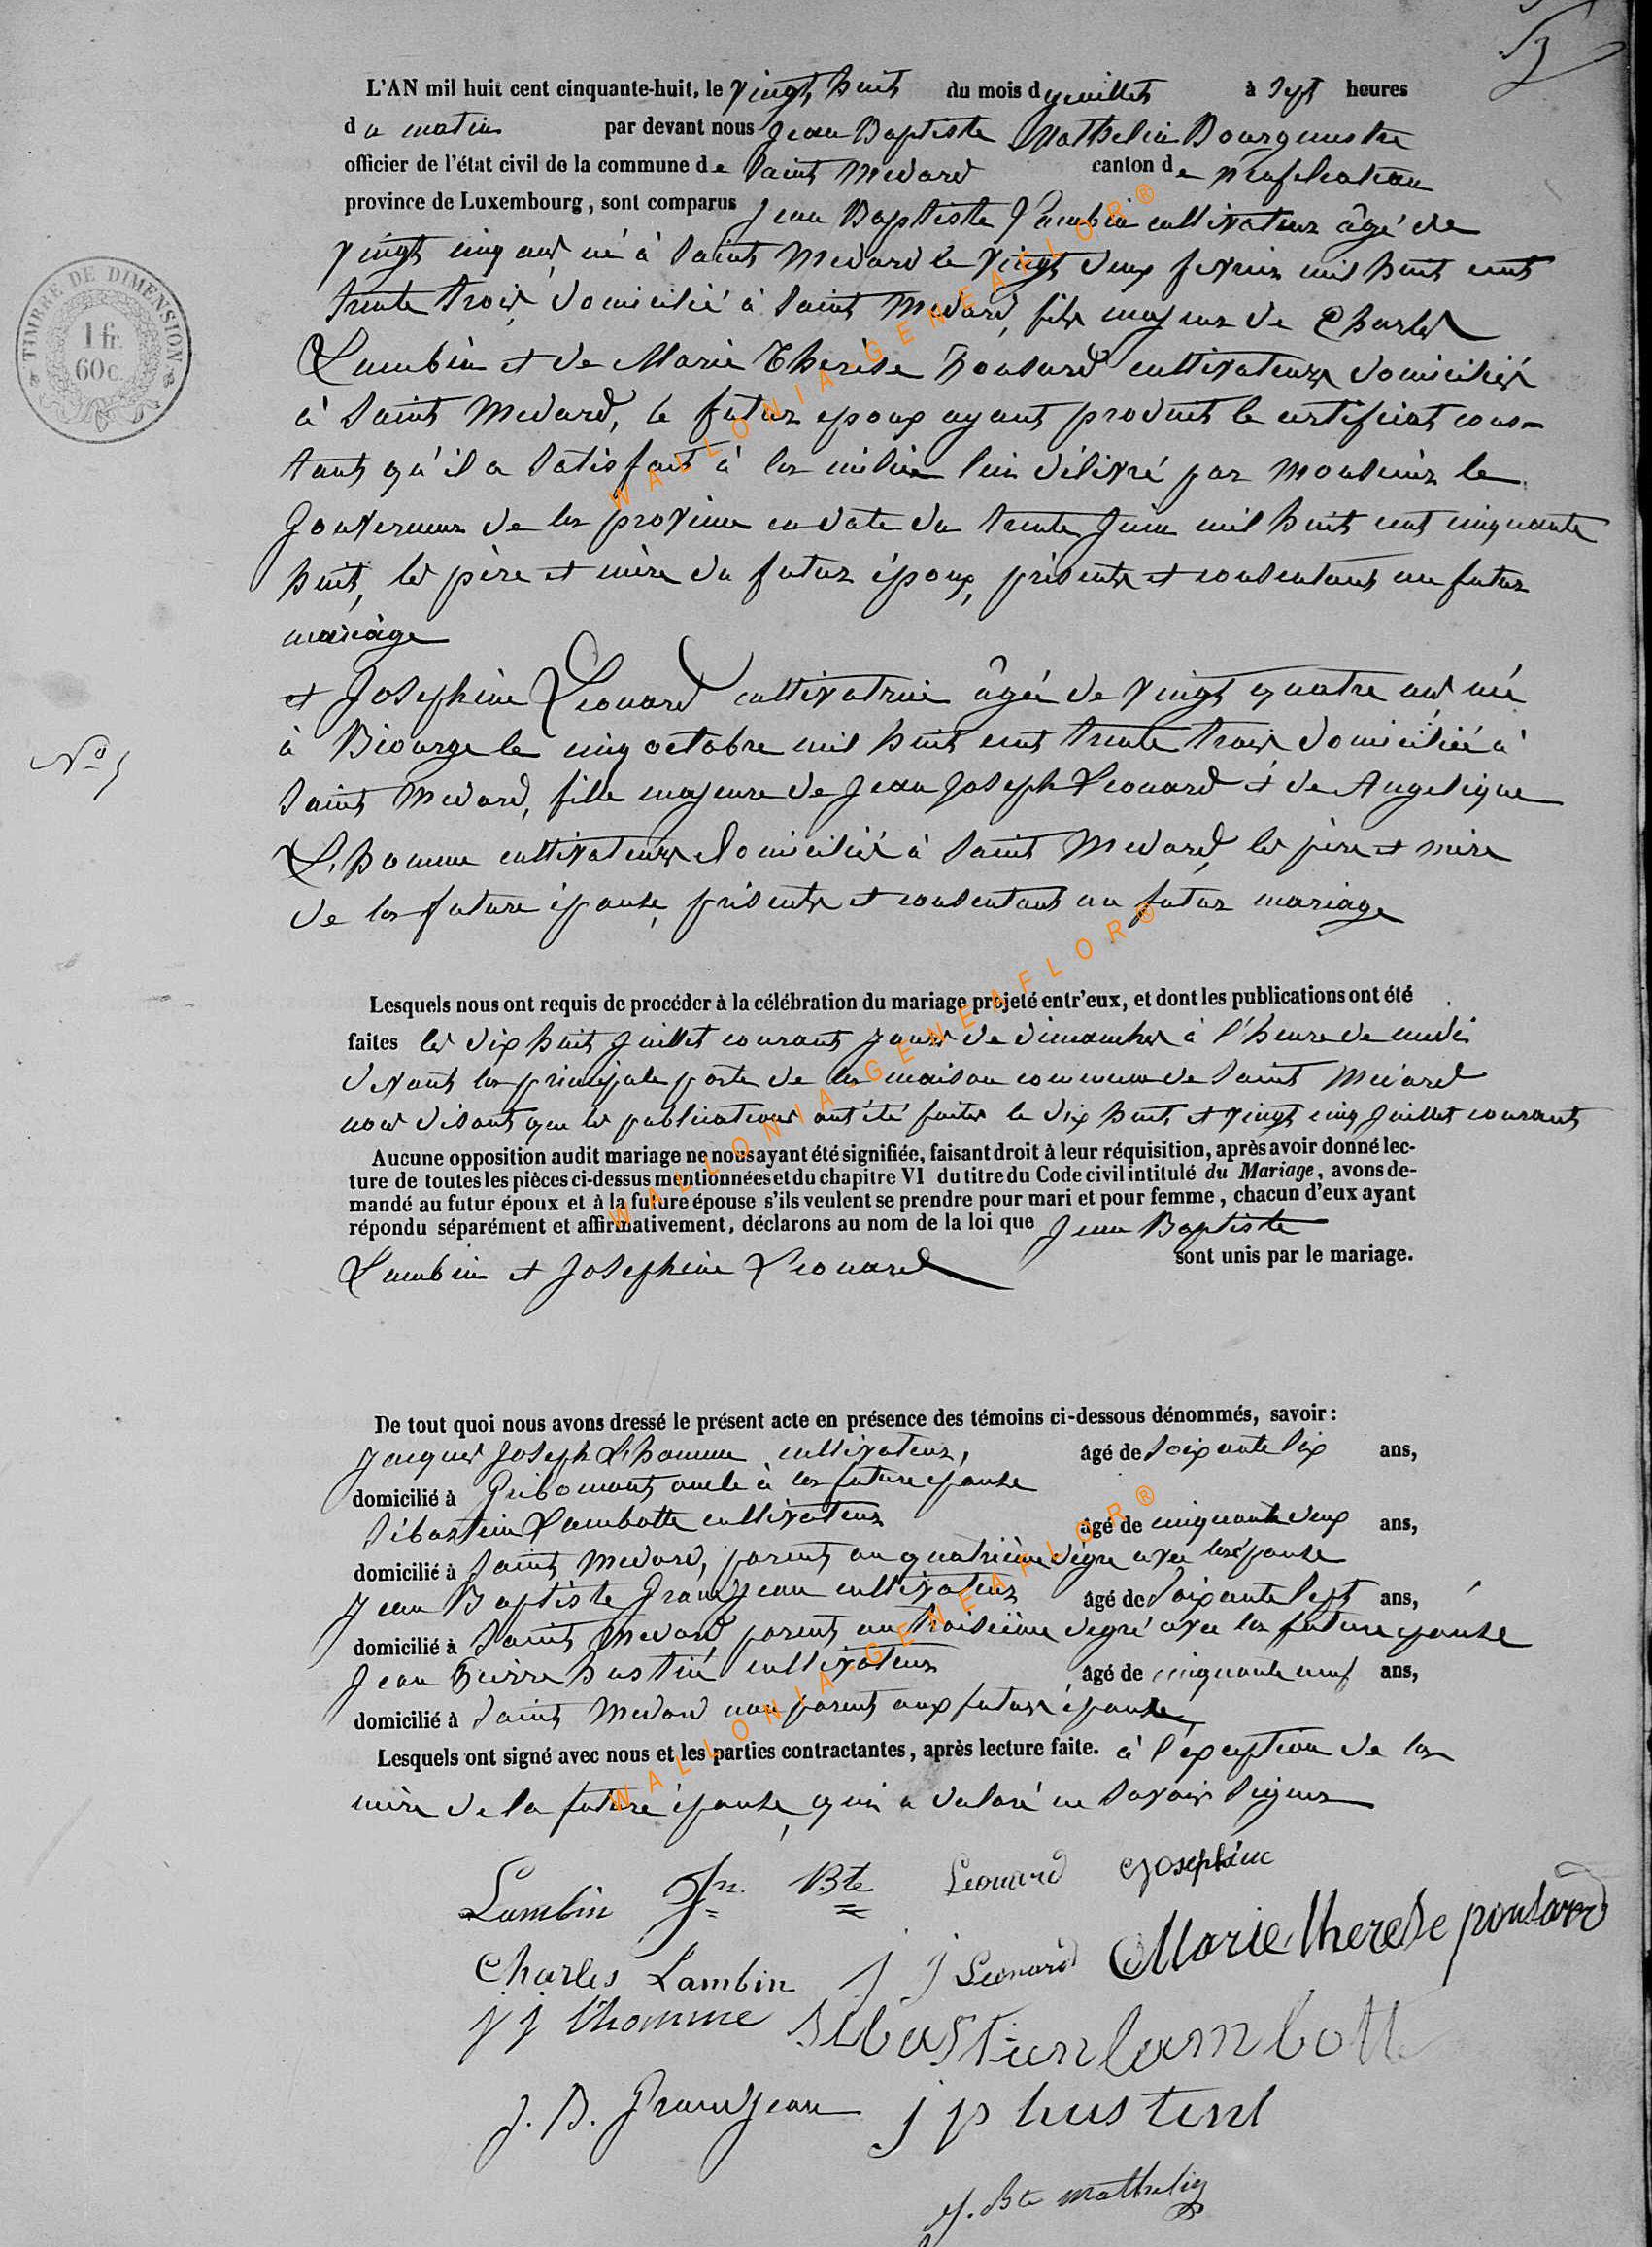 53
L'AN mil huit cent cinquante-huit, le vingt huit du mois d juillet à sept heures
du matin par devant nous Jean Baptiste Mathelin Bourgmestre
officier de l'état civil de la commune de Saint Medard canton de neufchateau
province de Luxembourg, sont comparus Jean Baptiste Lambin cultivateur âgé de
vingt cinq ans, né à Saint Medard le vingt deux fevrier mil huit cent
trente trois, domicilié à Saint Medard, fils majeur de Charles
Lambin et de Marie Therèse Ponsard cultivateurs domiciliés
à Saint Medard, le futur epoux ayant produit le certificat cons-
tant qu'il a satisfait à la milice lui délivré par Monsieur le
Gouverneur de la province en date du trente Juin mil huit cent cinquante
huit, les père et mère du futur époux, présents et consentant au futur
mariage
et Josephine Leonard cultivatrice âgée de vingt quatre ans née
à Biourge le cinq octobre mil huit cent trente trois domiciliée à
Saint Medard, fille majeure de Jean Joseph Leonard et de Angelique
L'homme cultivateurs domiciliés à Saint Medard, les père et mère
de la future épouse, présents et consentant au futur mariage
N° 5
TIMBRE DE DIMENSION
1 fr.
60 c.
Lesquels nous ont requis de procéder à la célébration du mariage projeté entr'eux, et dont les publications ont été
faites les dix huit Juillet courant jours de dimanches à l'heure de midi
devant la principale porte de la maison commune de Saint Médard
nous disons que les publications ont été faites le dix huit et vingt cinq Juillet courant
Aucune opposition audit mariage ne nous ayant été signifiée, faisant droit à leur réquisition, après avoir donné lec-
ture de toutes les pièces ci-dessus mentionnées et du chapitre VI du titre du Code civil intitulé du Mariage, avons de-
mandé au futur époux et à la future épouse s'ils veulent se prendre pour mari et pour femme, chacun d'eux ayant
répondu séparément et affirmativement, déclarons au nom de la loi que Jean Baptiste
Lambin et Josephine Leonard sont unis par le mariage.
De tout quoi nous avons dressé le présent acte en présence des témoins ci-dessous dénommés, savoir:
Jacques Joseph L'homme cultivateur, âgé de soixante six ans,
domicilié à Gribomont oncle à la future epouse
Sébastien Lambotte cultivateur âgé de cinquante deux ans,
domicilié à Saint Medard, parent au quatrième dégré avec la épouse
Jean Baptiste Grandjean cultivateur âgé de soixante sept ans,
domicilié à Saint Medard parent au troisième degré avec la future epouse
Jean Pierre hustin cultivateur âgé de cinquante neuf ans,
domicilié à Saint Medard non parent aux futurs épouse
Lesquels ont signé avec nous et les parties contractantes, après lecture faite. à l'exception de la
mère de la future épouse, qui a déclaré ne savoir signer
Lambin Jn. Bte Leonard Josephine
Charles Lambin J J Leonard Marie therese ponsard
J J l'homme sebastien lambotte
J. B. Grandjean j p hustin
J. Bte Mathelin
WALLONIA-GENEAFLOR®
WALLONIA-GENEAFLOR®
WALLONIA-GENEAFLOR®